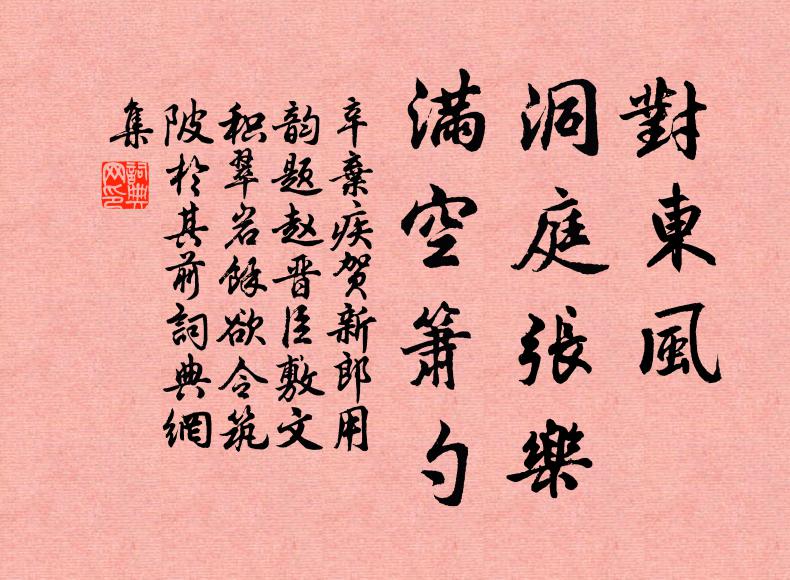 對東風
洞庭張樂
滿空簫勺
辛棄疾贺新郎用
韵题赵晋臣敷文
积翠岩馀欲令筑
陂於其前詞典網
集
詞典
网印